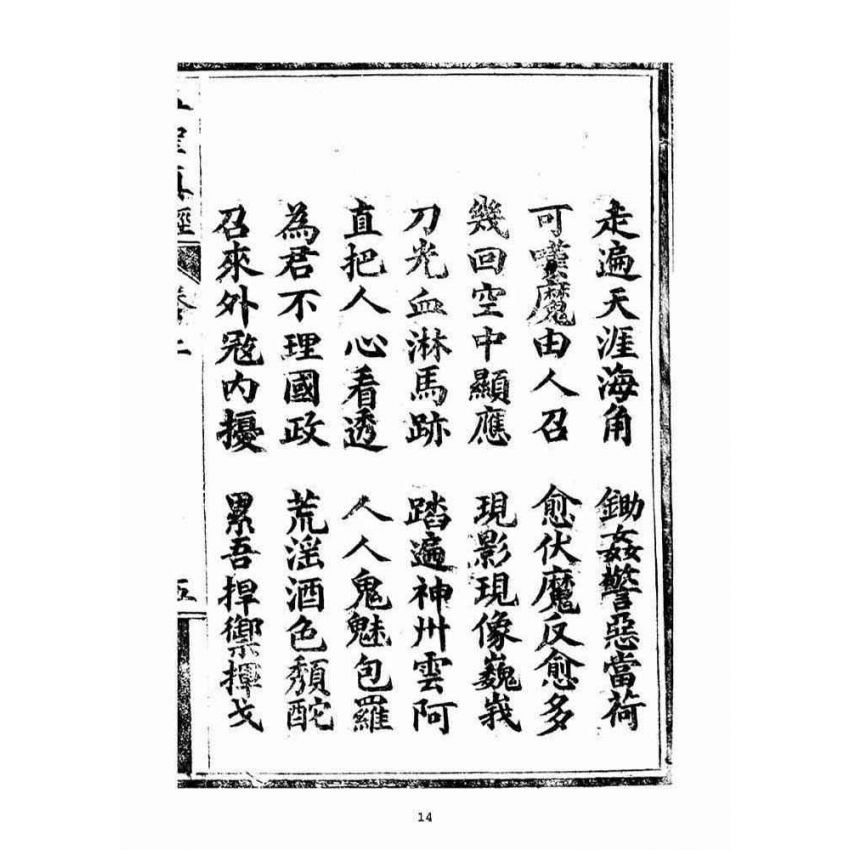 走遍天涯海角 鋤姦警惡當荷
可嘆魔由人召 愈伏魔反愈多
幾回空中顯應 現影現像巍峩
刀光血淋馬跡 踏遍神州雲阿
直把人心看透 人人鬼魅包羅
為君不理國政 荒淫酒色頽酡
召來外寇內擾 累吾捍禦揮戈
聖真經 卷二 五
14